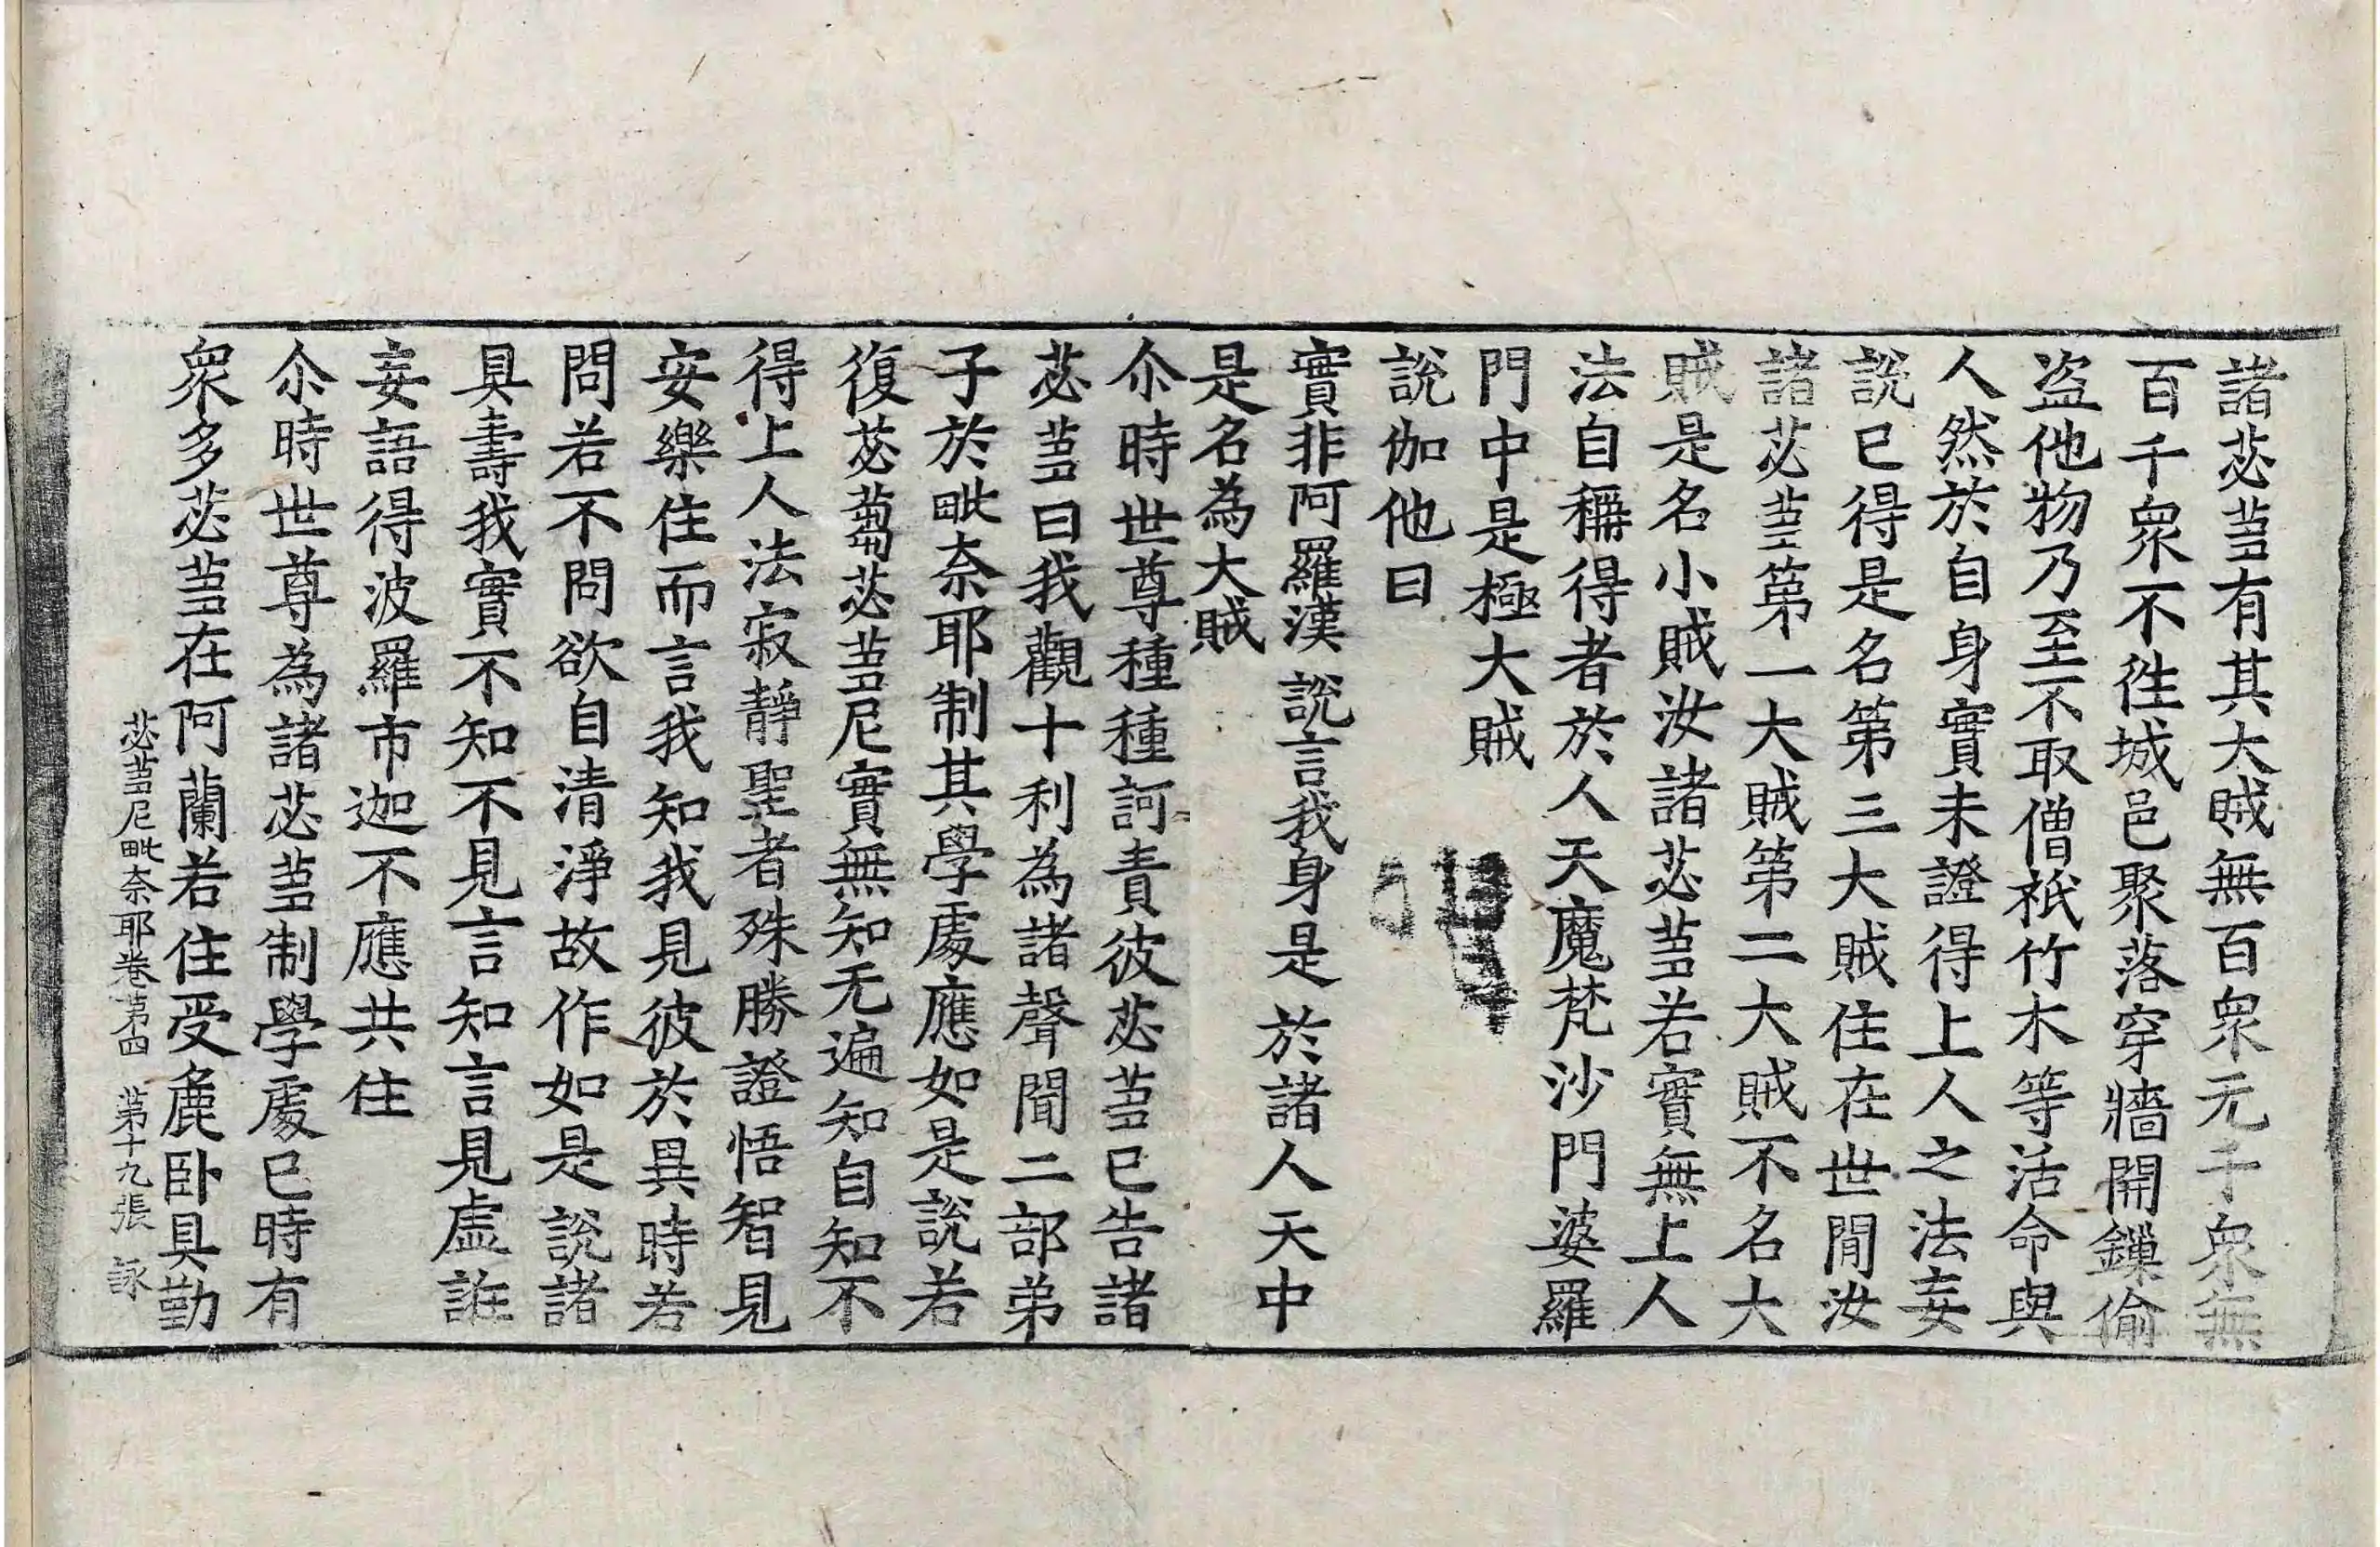 諸苾𦭼有其大賊無百衆无千衆無
百千衆不徃城邑聚落穿牆開鏁偷
盗他物乃至不取僧祇竹木等活命與
人然於自身實未證得上人之法妄
說已得是名第三大賊住在世閒汝
諸苾𦭼第一大賊第二大賊不名大
賊是名小賊汝諸苾𦭼若實無上人
法自稱得者於人天魔梵沙門婆羅
門中是極大賊
說伽他曰
實非阿羅漢 說言我身是 於諸人天中
是名為大賊
尒時世尊種種訶責彼苾𦭼已告諸
苾𦭼曰我觀十利為諸聲聞二部弟
子於毗奈耶制其學處應如是說若
復苾蒭苾𦭼尼實無知无遍知自知不
得上人法寂靜聖者殊勝證悟智見
安樂住而言我知我見彼於異時若
問若不問欲自清淨故作如是說諸
具壽我實不知不見言知言見虛誑
妄語得波羅市迦不應共住
尒時世尊為諸苾𦭼制學處已時有
衆多苾𦭼在阿蘭若住受麁卧具勤
苾𦭼尼毗奈耶卷第四 第十九張 詠